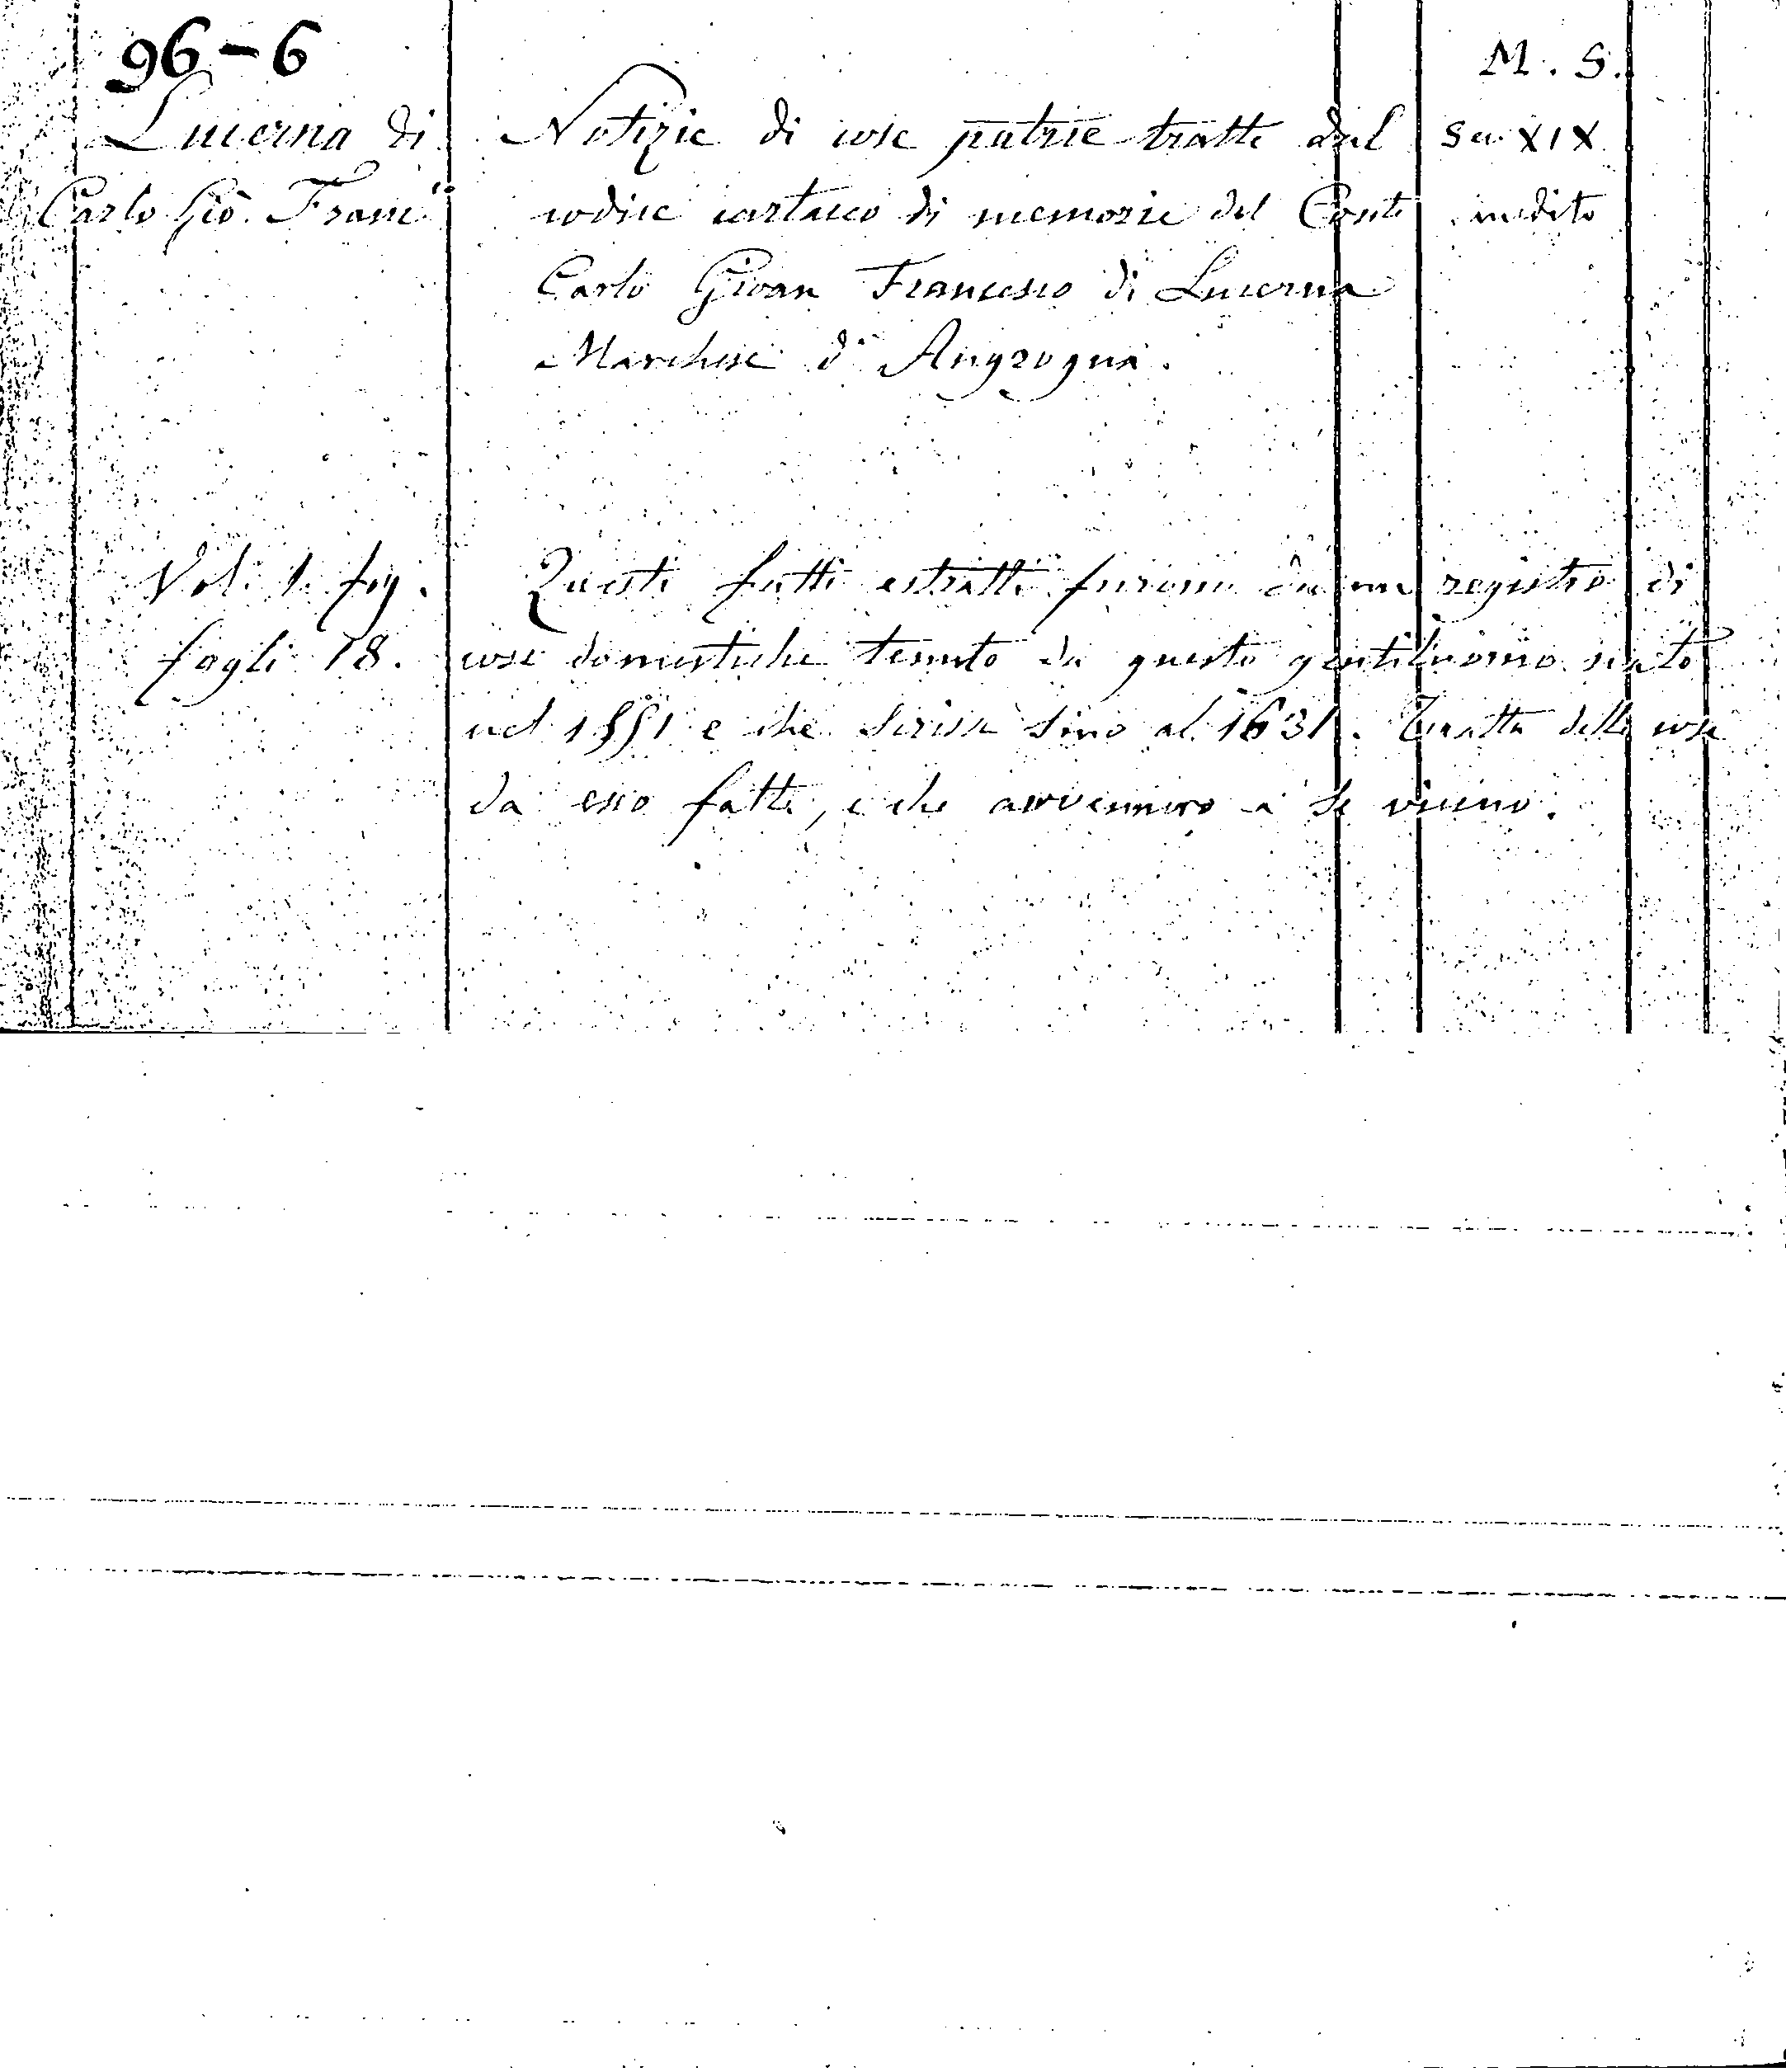 96-6
M. S.
Lucerna di
Notizie di cose patrie tratte dal
Sec. XIX
Carlo Gio. Franc.co
codice cartaceo di memorie del Conte
inedito
Carlo Giovan Francesco di Lucerna
Marchese d'Angrogna.
Vol. 1. fog.
Questi fatti estratti furono da un registro di
fogli 18.
cose domestiche tenuto da questo gentiluomo nato
nel 1551 e che scrisse sino al 1631. Tratta delle cose
da esso fatte, e che avvennero a se vicino.